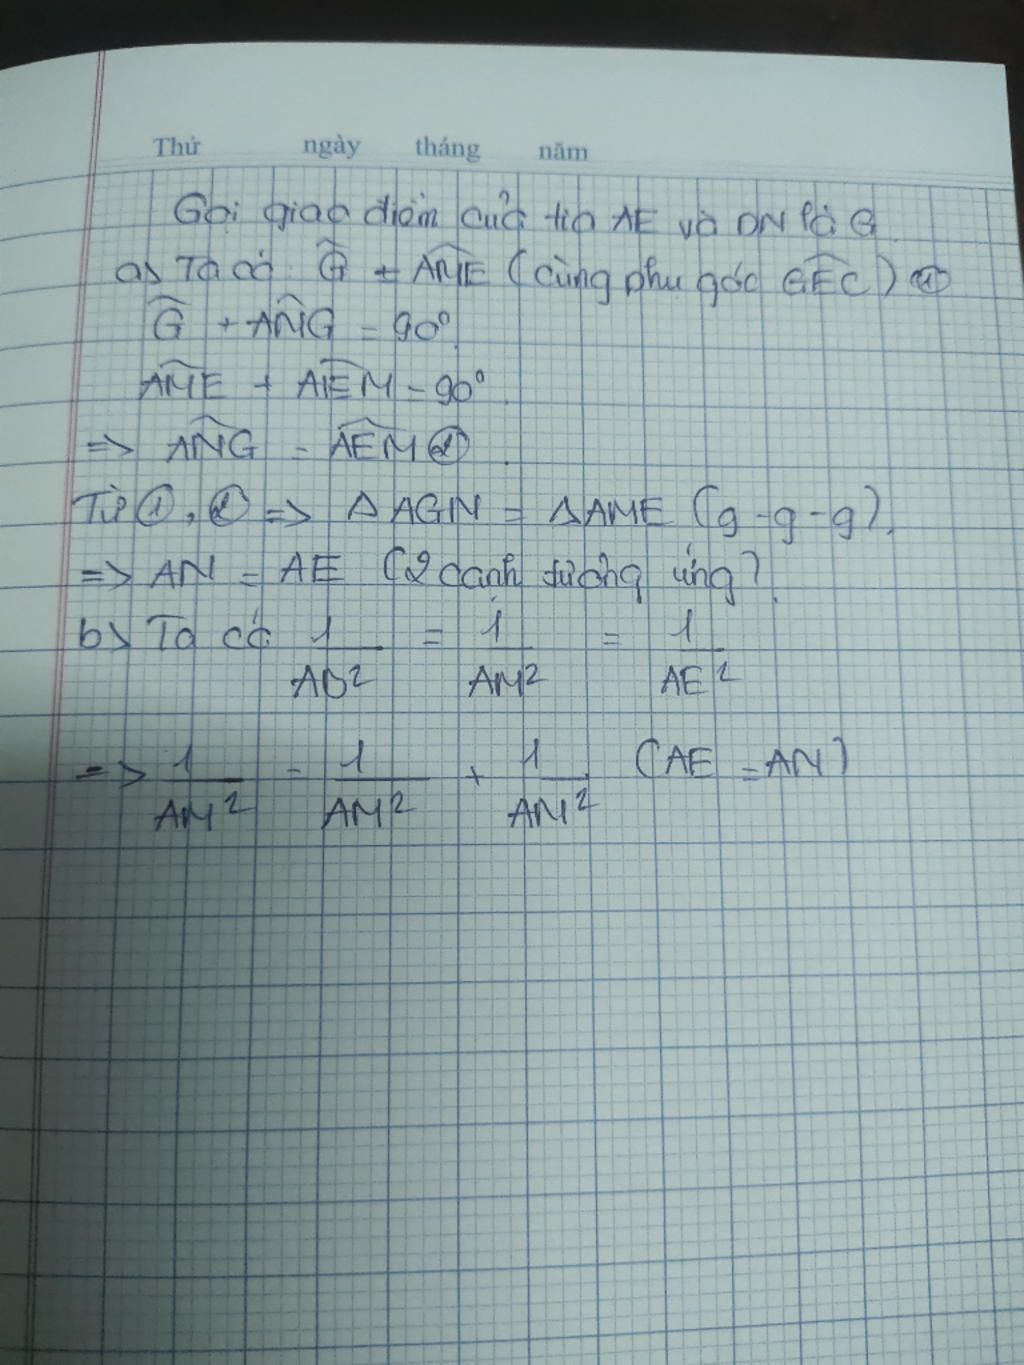 Thứ ngày tháng năm
Gọi giao điểm của tia AE và DN là G
a) Ta có: Ĝ = AME (cùng phụ góc GEC) ①
Ĝ + ANG = 90°
AME + AEM = 90°
=> ANG = AEM ②
Từ ①, ② => Δ AGN = Δ AME (g-g-g).
=> AN = AE (2 cạnh tương ứng)
b) Ta có 1/AD² = 1/AM² = 1/AE²
=> 1/AM² = 1/AM² + 1/AN² (AE = AN)